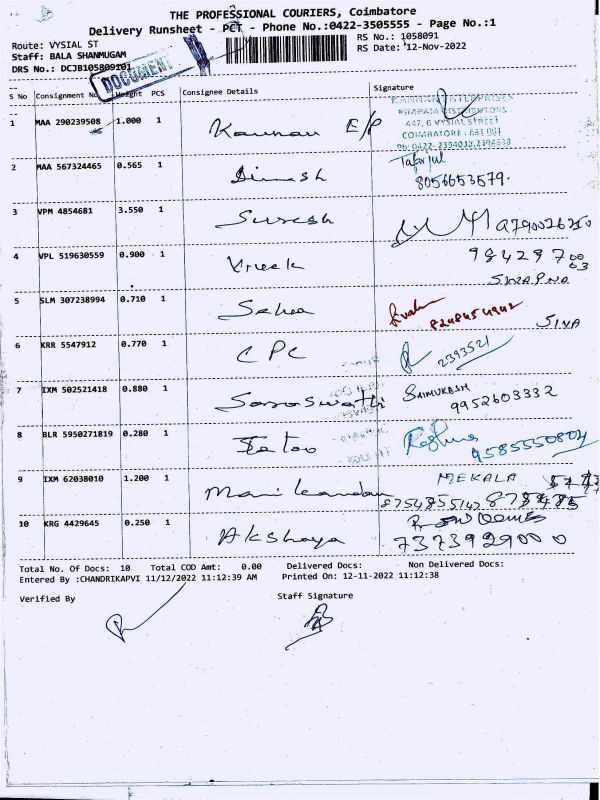 THE PROFESSIONAL COURIERS, Coimbatore
Delivery Runsheet - PCT - Phone No.:0422-3505555 - Page No.:1
Route: VYSIAL ST
RS No.: 1058091
Staff: BALA SHANMUGAM
RS Date: 12-Nov-2022
DRS No.: DCJB105809101
DOCUMENT
S No Consignment No Weight PCS Consignee Details Signature
KANNAN ENTERPRISES
1 MAA 290239508 1.000 1 Kannan E/P
447, 6 VYSIAL STREET
COIMBATORE - 641 001
2 MAA 567324465 0.565 1 Dinesh
8056653579.
3 VPM 4854681 3.550 1 Suresh
4 VPL 519630559 0.900 1 Vivek
SWAPNA
5 SLM 307238994 0.710 1
8248454942
SIVA
6 KRR 5547912 0.770 1 CPC 2393521
7 IXM 502521418 0.880 1 Saraswathi SAIMUKESH
9952603332
8 BLR 5950271819 0.280 1
9585550804
9 IXM 62038010 1.200 1 Manikandan MEKALA
10 KRG 4429645 0.250 1 Akshaya
7373929000
Total No. Of Docs: 10 Total COD Amt: 0.00 Delivered Docs: Non Delivered Docs:
Entered By :CHANDRIKAPVI 11/12/2022 11:12:39 AM Printed On: 12-11-2022 11:12:38
Verified By Staff Signature